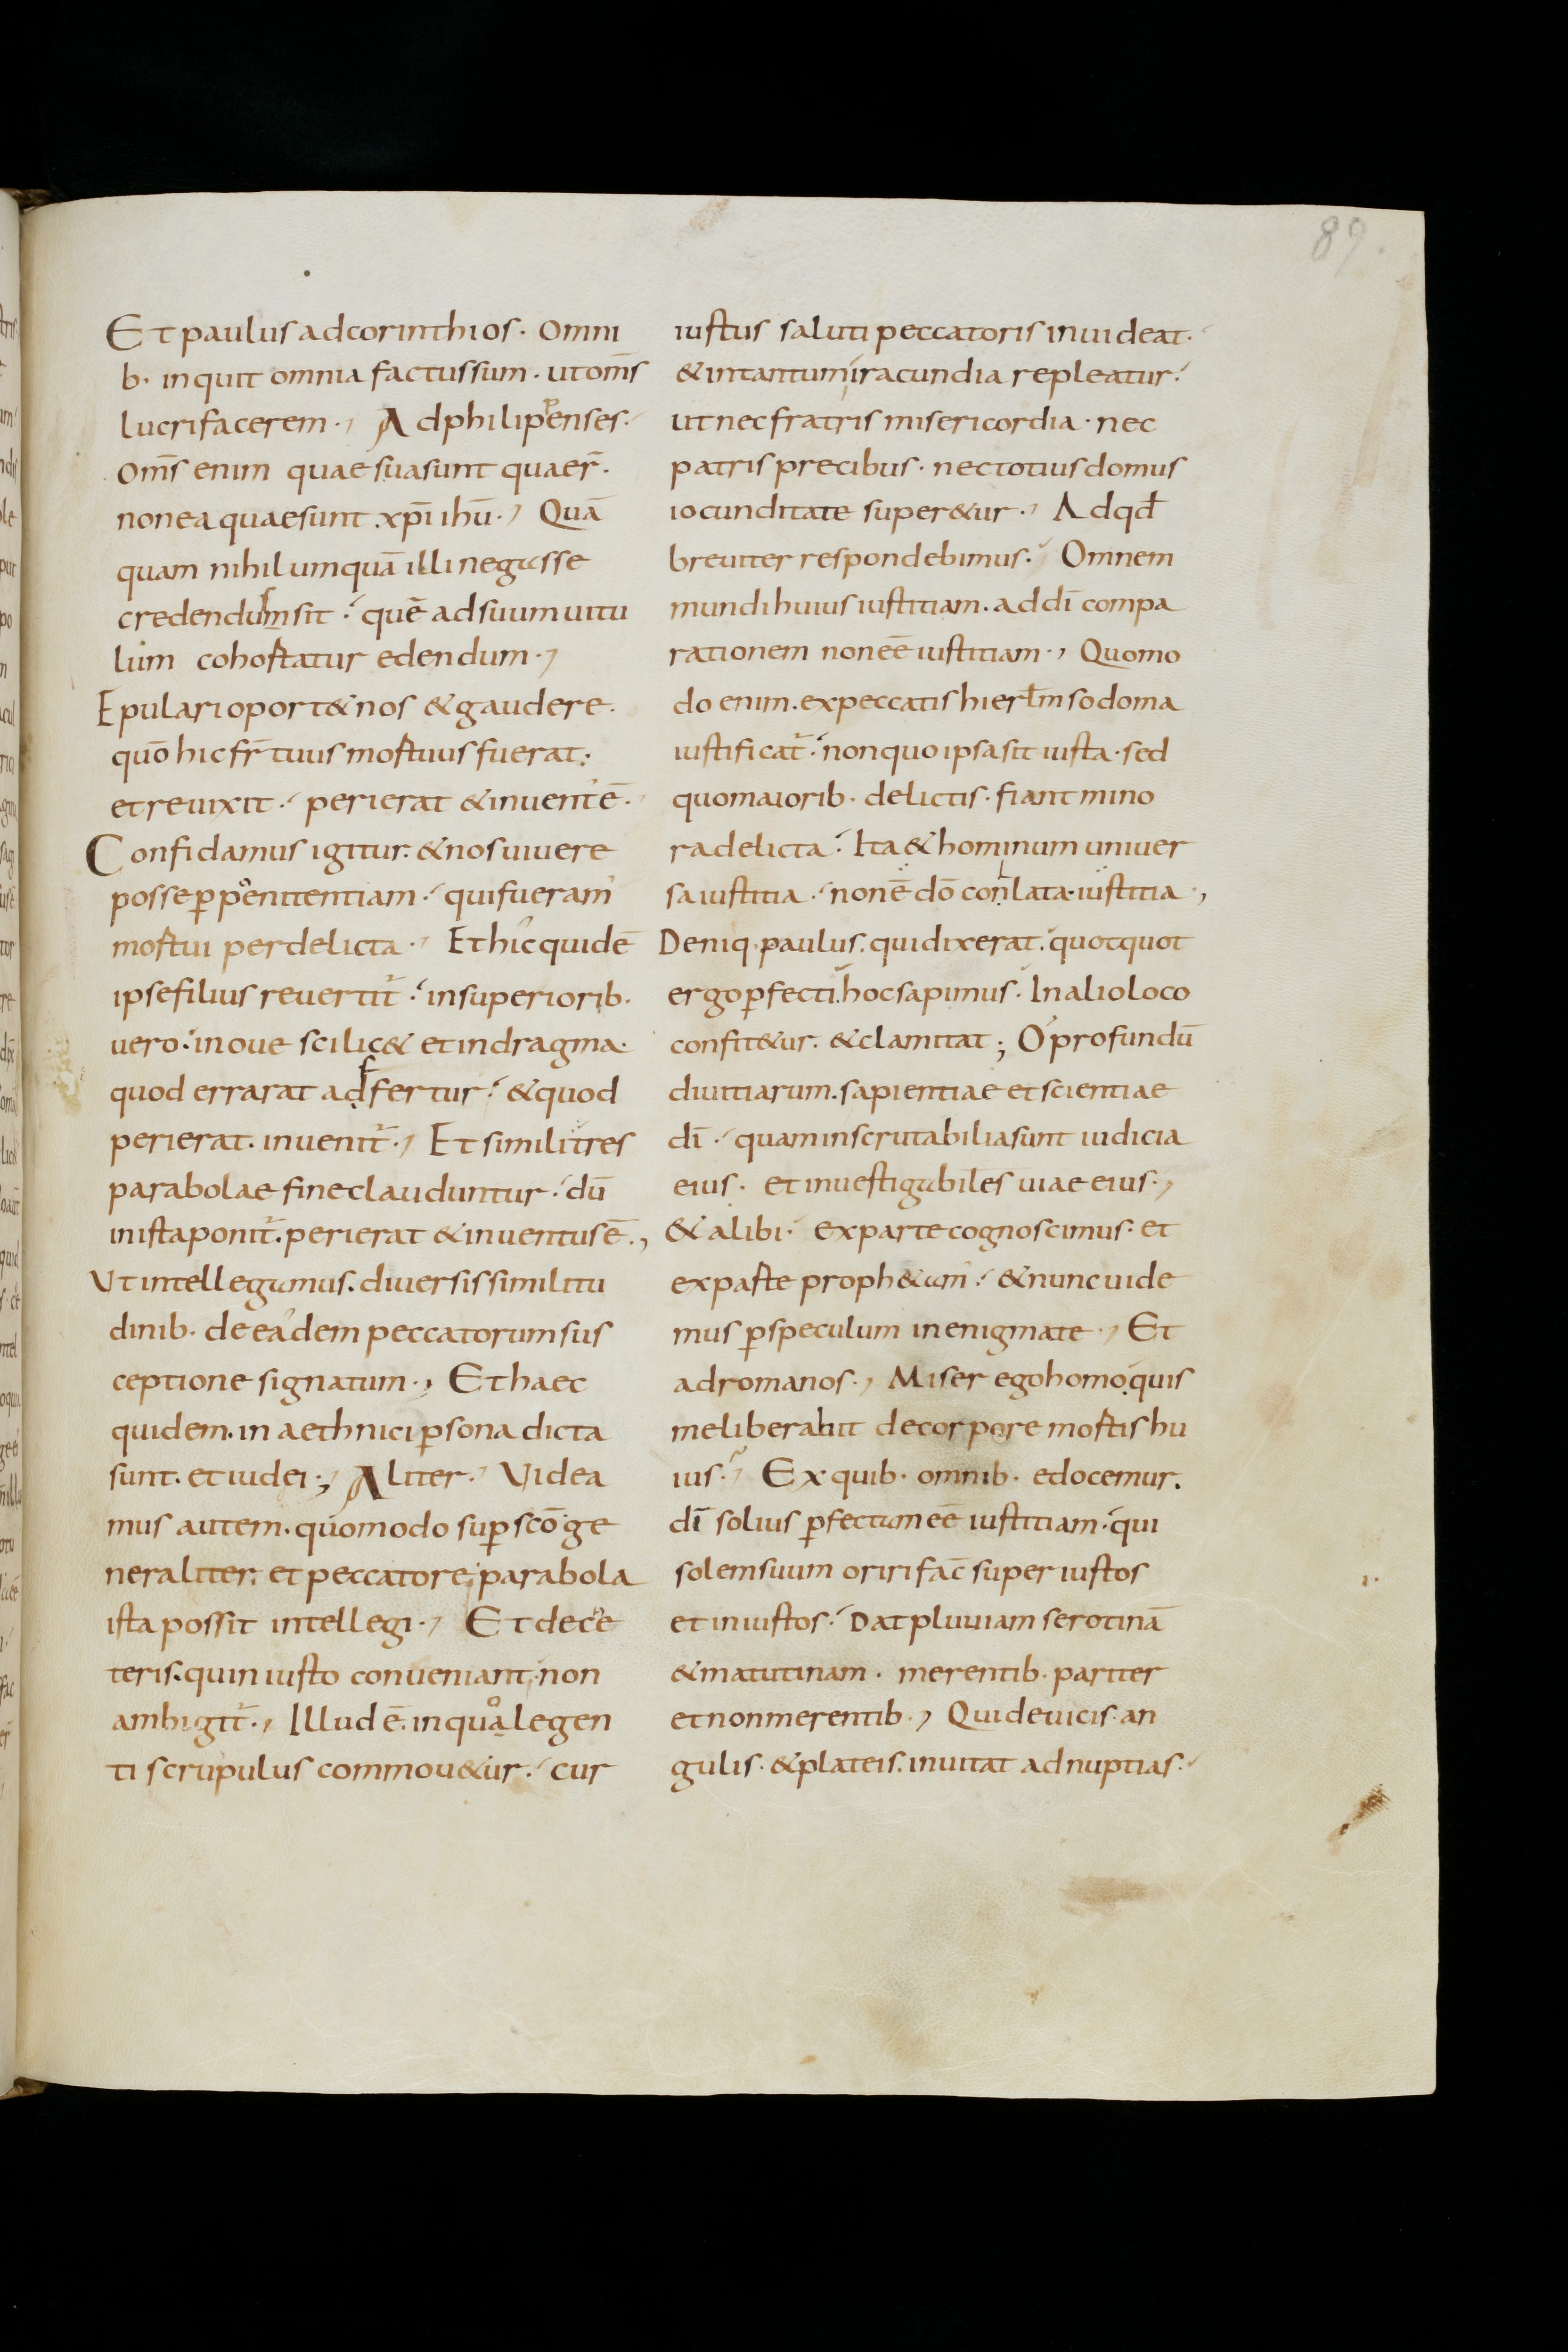 89.
Et paulus adcorinthios · omni
b· inquit omnia factussum · utom̄s
lucrifacerem ·, Adphilippenses ·
om̄s enim quae suasunt quaer̄ ·
nonea quaesunt xp̄i ihū ·, Quā
quam nihil umquā illi negasse
credendumsit : quē adsuum uitu
lum cohortatur edendum ·,
Epulari oport& nos & gaudere ·
quō hic fr̄ tuus mortuus fuerat :
et reuixit · perierat & inuentē ·
Confidamus igitur · & nos uiuere
posse ꝑ poenitentiam · qui fueram
mortui per delicta ·, Et hic quidē
ipse filius reuertit̄ : in superiorib ·
uero · in oue scilic& et in dragma ·
quod errarat adfertur : & quod
perierat · inuenit̄ ·, Et similit̄ res
parabolae fine clauduntur · dū
in ista ponit̄ · perierat & inuentus ē ·,
Ut intellegamus · diuersis similitu
dinib · de eadem peccatorum sus
ceptione signatum ·, Et haec
quidem · in aethnici ꝑsona dicta
sunt · et iudei ·, Aliter · Uidea
mus autem · quomodo suꝑ scō ge
neraliter : et peccatore parabola
ista possit intellegi ·, Et de cae
teris · quin iusto conueniant · non
ambigit̄ ·, Illud ē · in quo legen
ti scrupulus commou&ur · cur
iustus saluti peccatoris inuideat ·
& intantum iracundia repleatur :
ut nec fratris misericordia · nec
patris precibus · nec totius domus
iocunditate super&ur ·, Ad qđ
breuiter respondebimus · Omnem
mundi huius iustitiam · ad dī compa
rationem non eē iustitiam ·, Quomo
do enim · ex peccatis hierłm sodoma
iustificat̄ : non quo ipsa sit iusta · sed
quo maiorib · delictis · fiant mino
ra delicta : Ita & hominum uniuer
sa iustitia · non ē dō conlata · iustitia ·,
Deniq · paulus · qui dixerat · quotquot
ergo ꝑfecti · hoc sapimus · In alio loco
confit&ur · & clamitat ; O profundū
diuitiarum · sapientiae et scientiae
dī · quam inscrutabilia sunt iudicia
eius · et inuestigabiles uiae eius ·,
& alibi · ex parte cognoscimus · et
ex parte proph&am̄ : & nunc uide
mus ꝑ speculum in enigmate ·, Et
ad romanos ·, Miser ego homo · quis
me liberabit de corpore mortis hu
ius ·, Ex quib · omnib · edocemur ·
dī solius ꝑfectam eē iustitiam · qui
solem suum oriri fac̄ super iustos
et iniustos · Dat pluuiam serotinā
& matutinam · merentib · pariter
et non merentib ·, Qui de uicis · an
gulis · & plateis · inuitat ad nuptias ·